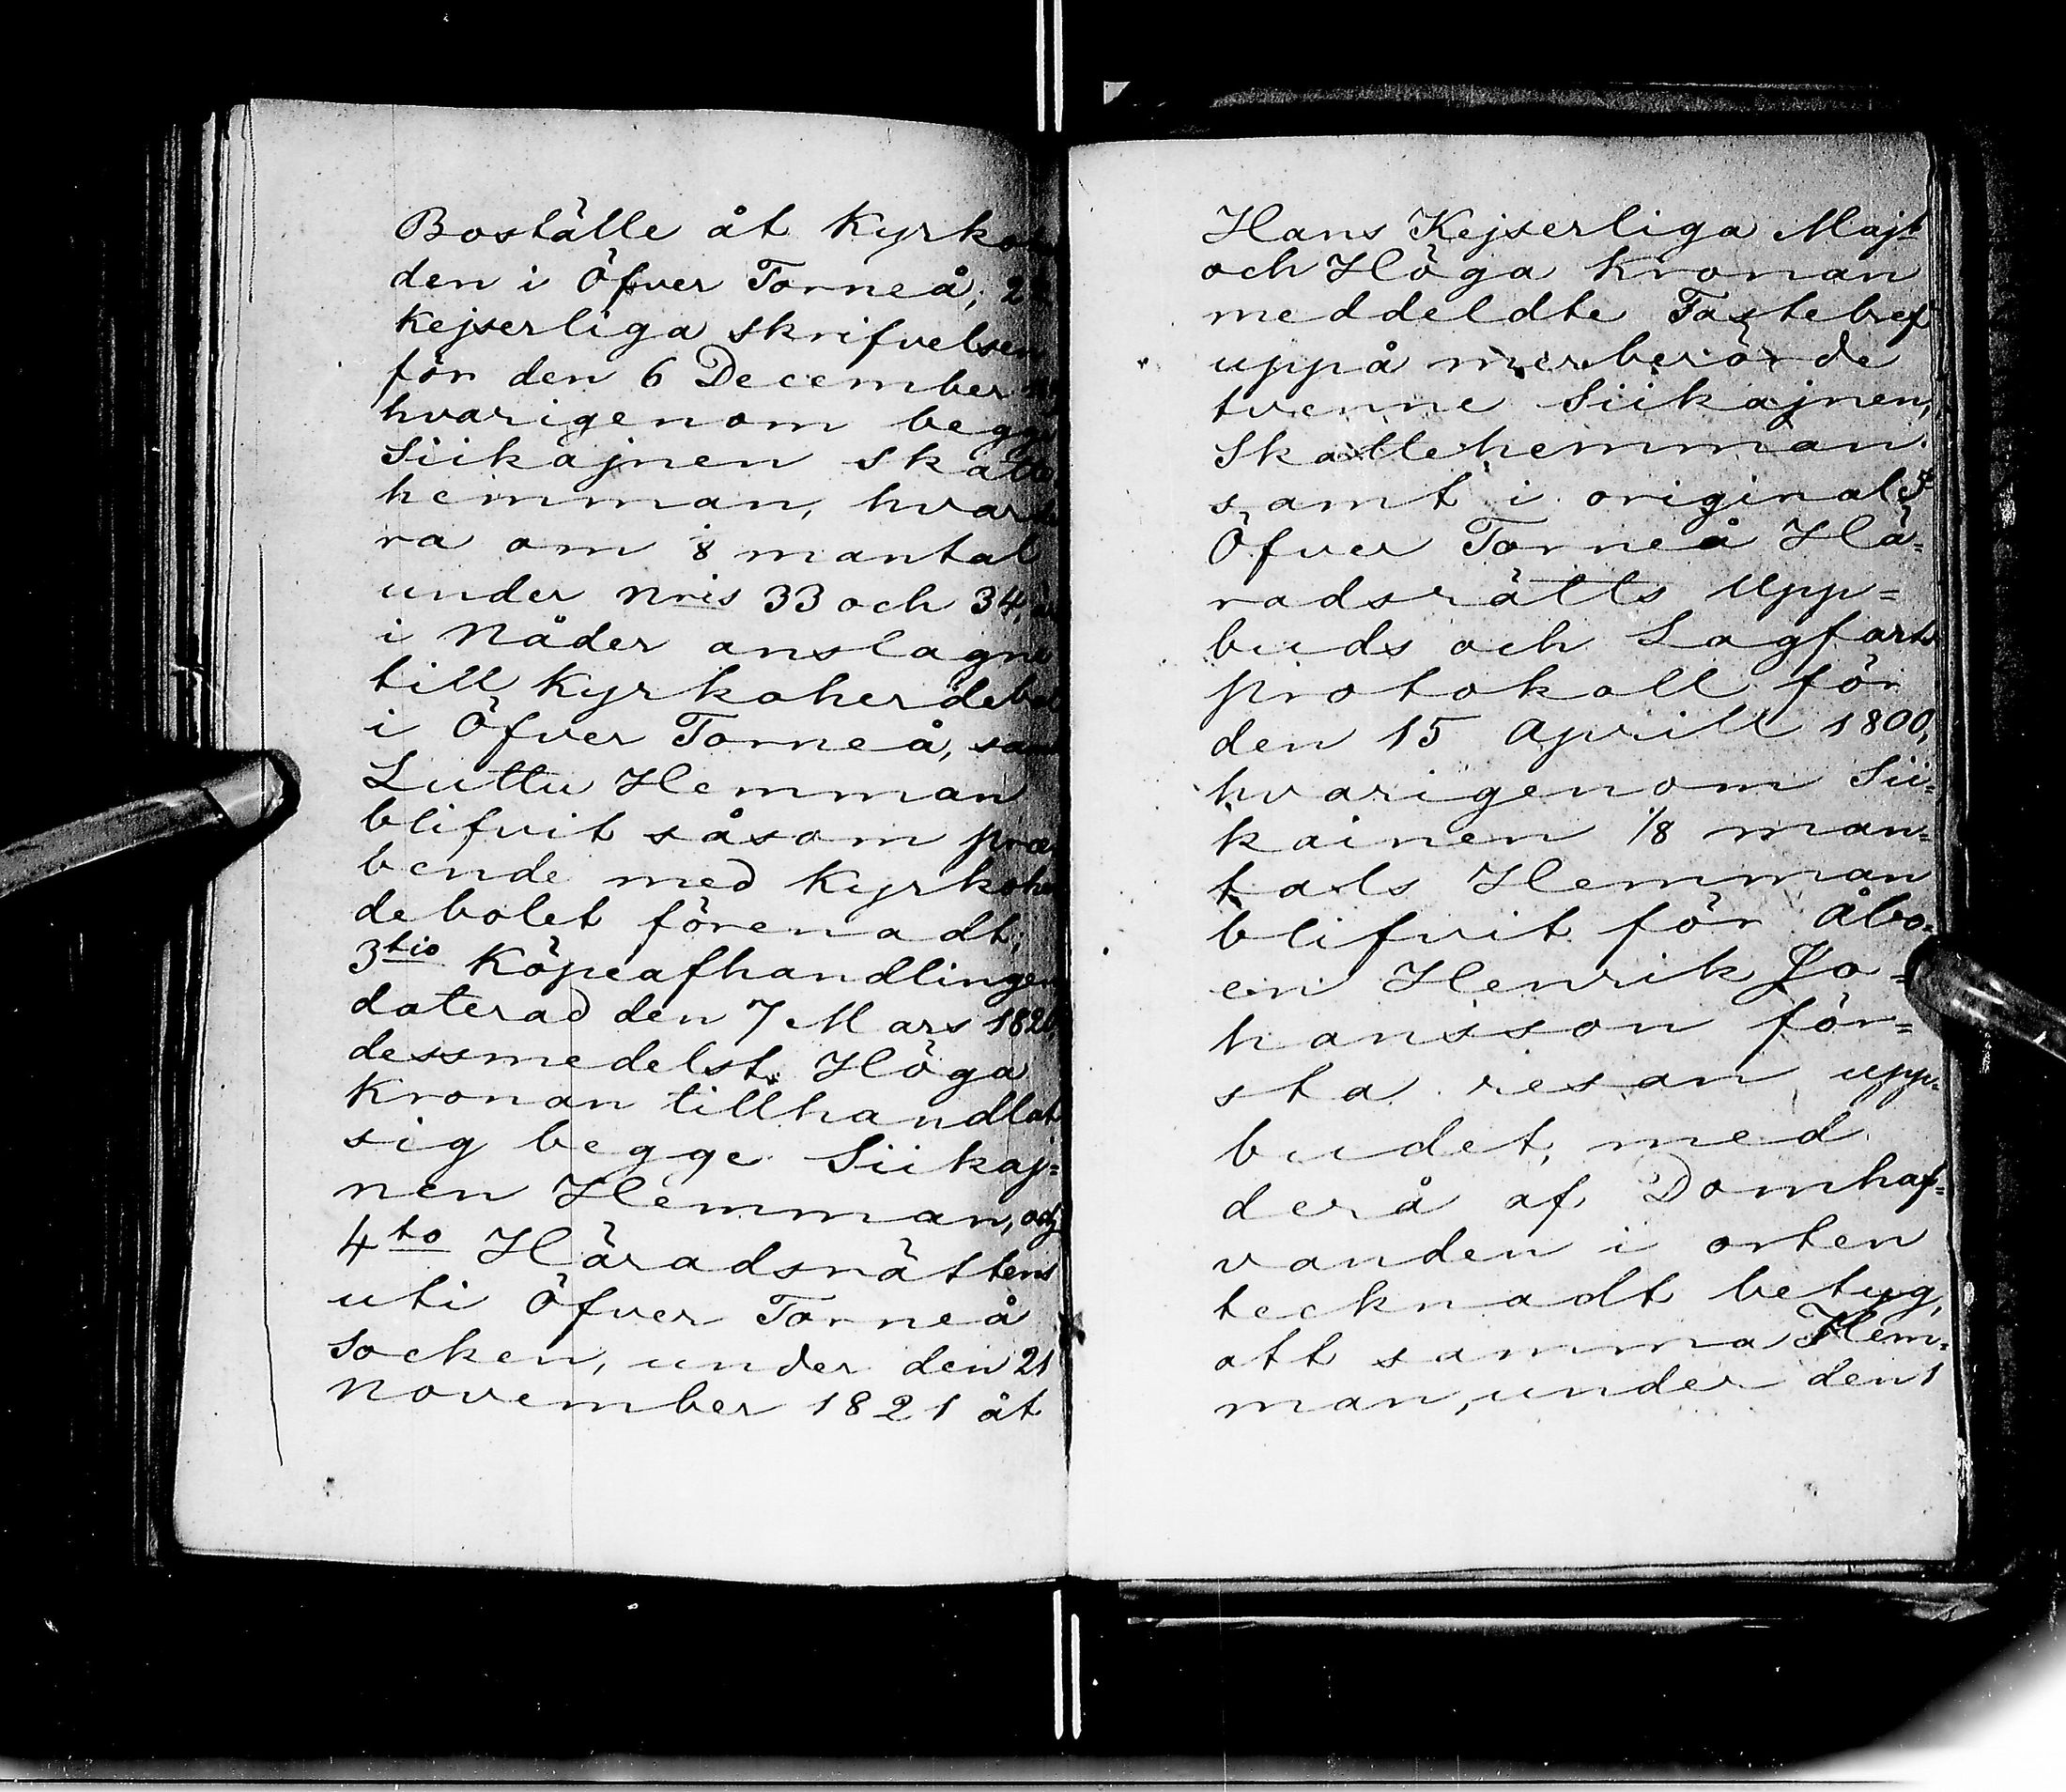 Boställe åt Kyrko
den i Öfver Torneå; 2
Kejserliga skrifvelsen
för den 6 December
hvarigenom begge
Siikajnen skatte
hemman, hvart
ra om 1/8 mantal
under Nris 33 och 34,
i Nåder anslagne
till Kyrkoherdebol
i Öfver Torneå, samt
Luttu Hemman
blifvit såsom præ
bende med Kyrkoher
debolet förenadt;
3tio Köpeafhandlingen
daterad den 7 Mars 182
dessmedelst Höga
Kronan tillhandlat
sig begge Siikaj=
nen Hemman, och
4to Häradsrättens
uti Öfver Torneå
Socken, under den 21
November 1821 åt
Hans Kejserliga Majt
och Höga Kronan
meddeldte Fastebref
uppå merberörde
tvenne Siikajnen,
Skattehemman
samt i original
Öfver Torneå Hä=
radsrätts Upp=
buds och Lagfarts
protokoll för
den 15 Aprill 1800,
hvarigenom Sii=
kainen 1/8 man=
tals Hemman
blifvit för Åbo=
en Henrik Jo=
hansson för=
sta resan upp=
budet, med
derå af Domhaf=
vanden i orten
tecknadt betyg,
att samma Hem=
man, under den 1